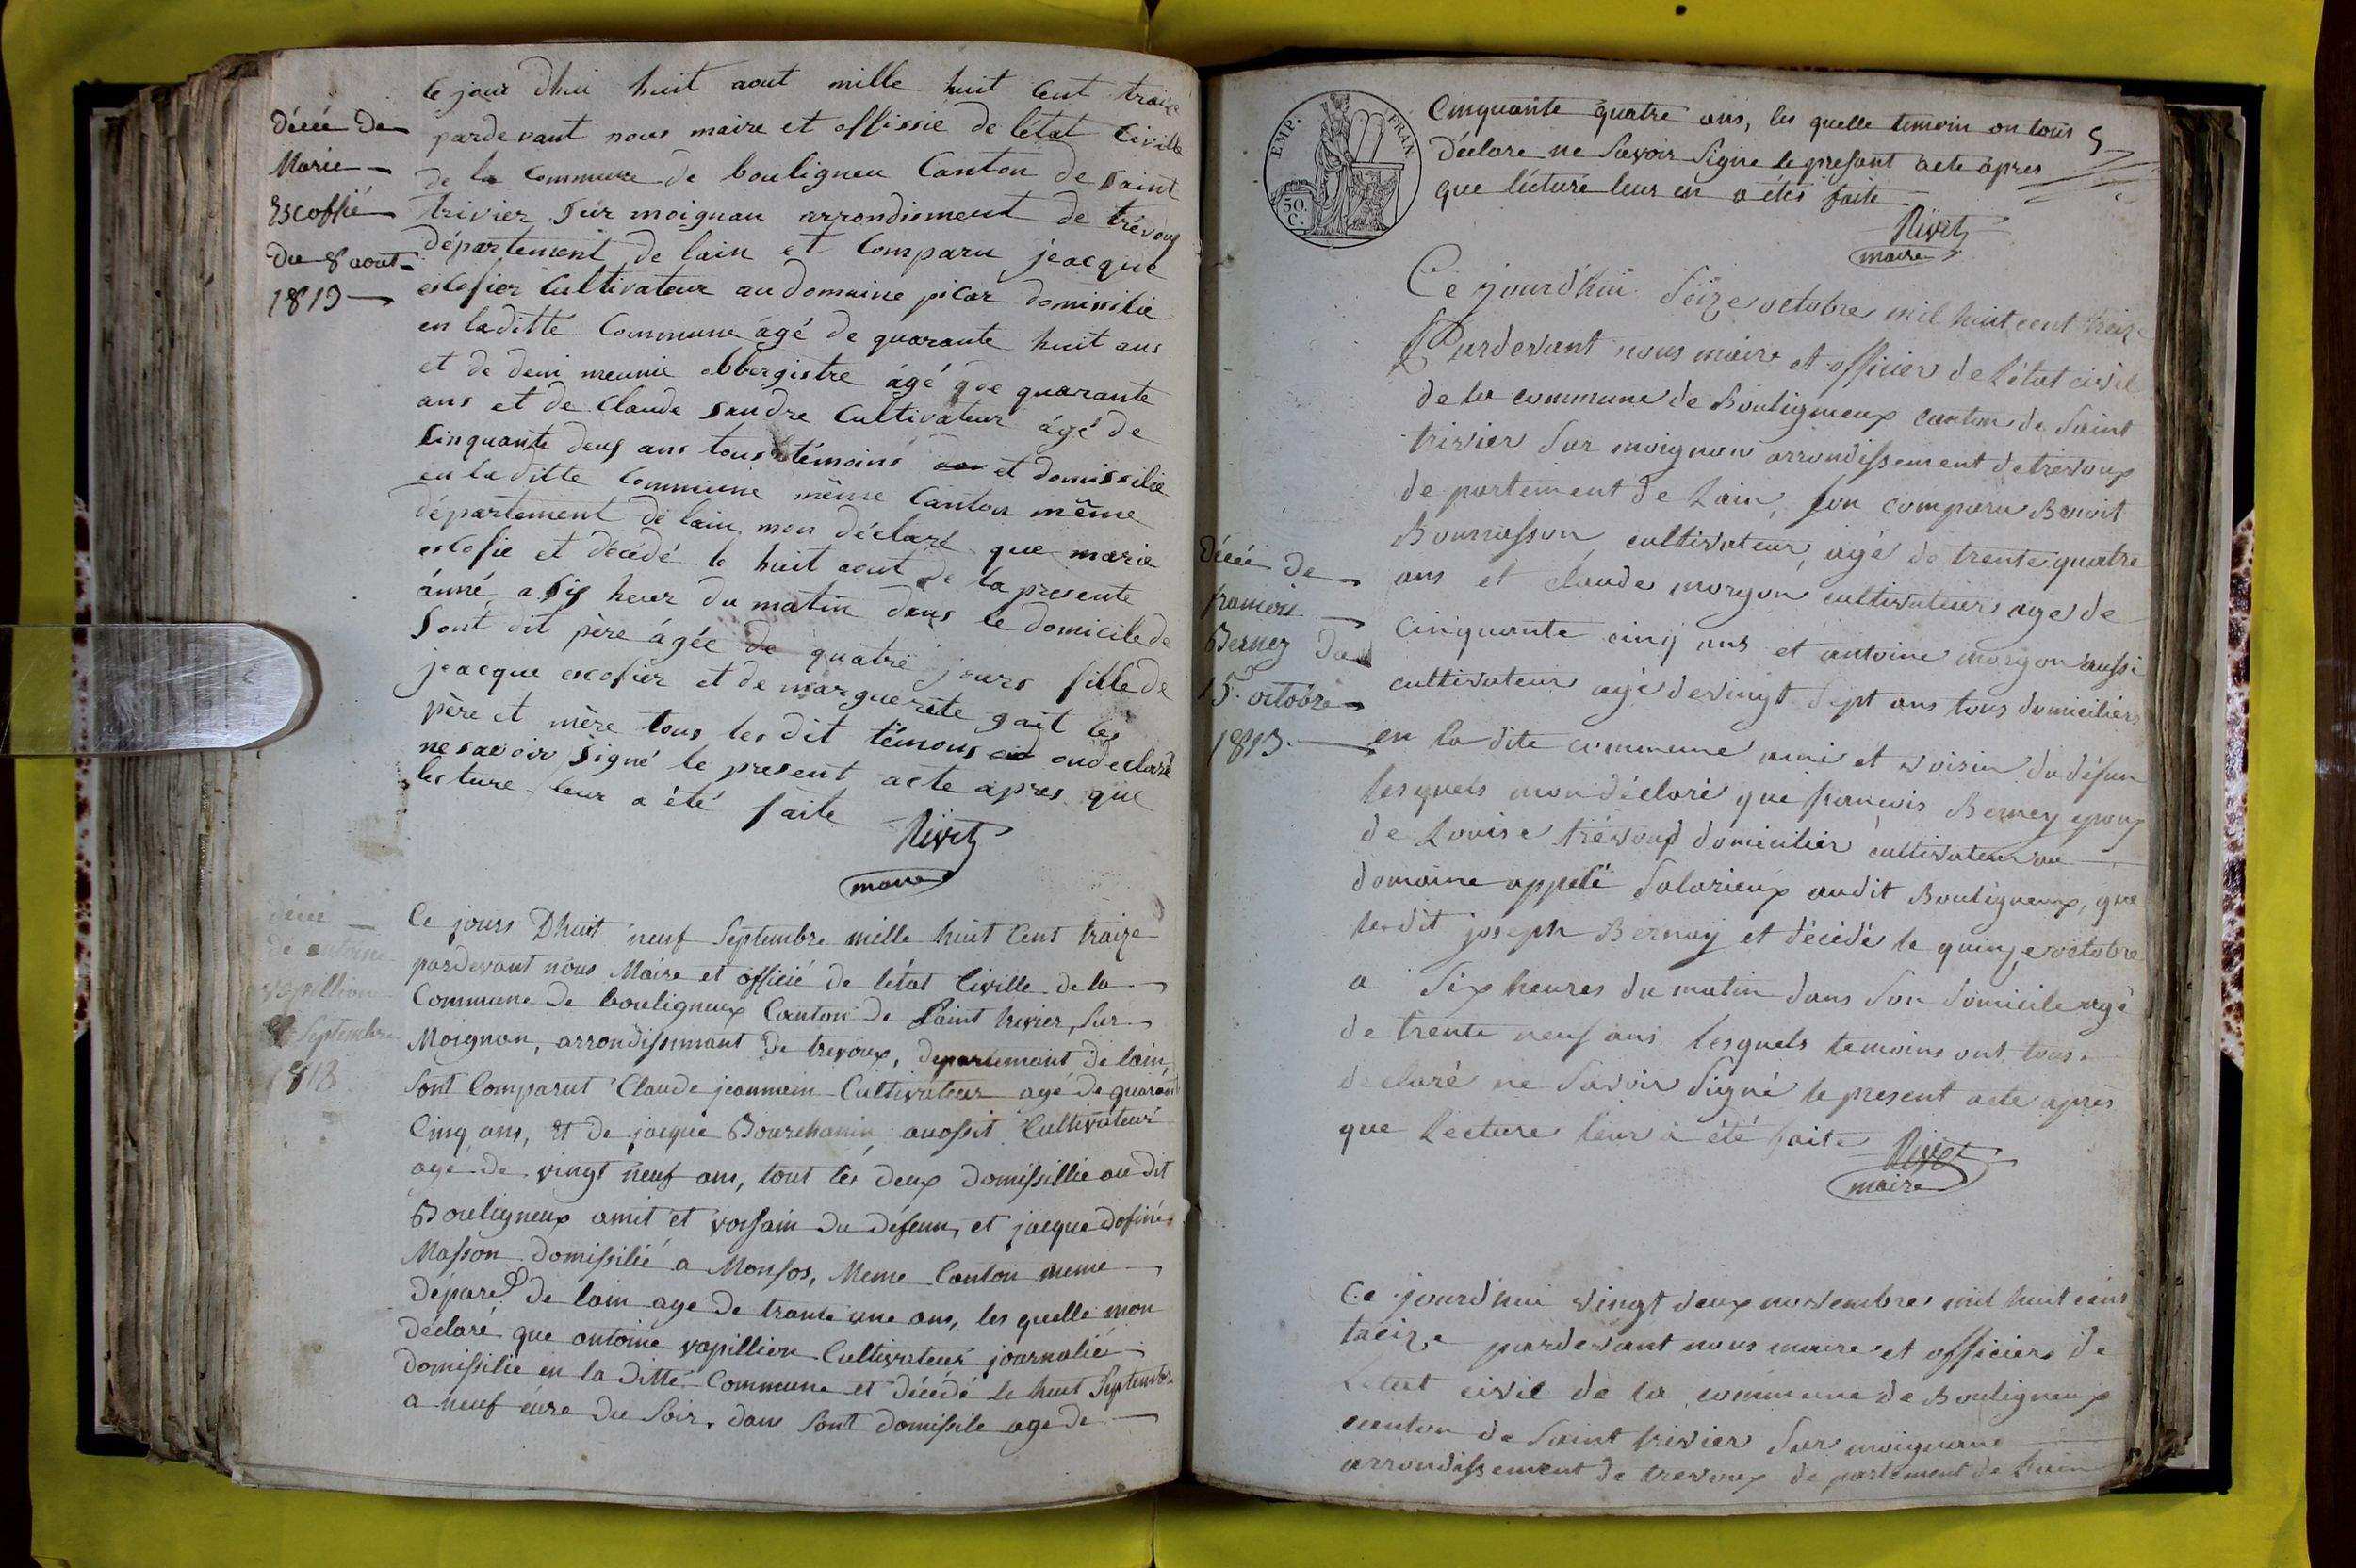 décée de
Marie
Escoffié
du 8 aout
1813
Ce jour dhui huit aout mille huit cent traize
pardevant nous maire et offissié de létat Civille
de la Commune de bouligneu Canton de Saint
trivier Sur moignan arrondisment de trévous
département de lain et Comparu jeacque
escofier Cultivateur au domaine picar domissilie
en laditte Commune ágé de quarante huit ans
et de deni meunie obbergistre ágé que quarante
ans et de Claude Sandre Cultivateur ágé de
Sinquante deus ans tous témoins et domissilie
en la ditte Commune même Canton même
département de lain mon déclaré que marie
escofie et décédé le huit aout de la presente
ánné a Sis heur du matin dans le domicile de
Sont dit père ágée de quatre jours fille de
jeacque escofier et de marguerete gait les
père et mère tous les dit témons on declaré
ne savoir Signé le present acte apres que
lecture leur a été faite
Rivet
maire
décée
de antoine
vapillion
Septembre
1813
Ce jours Dhuit neuf Septembre mille huit Cent traize
pardevant nous Maire et officié de létat Civille de la
Commune de bouligneux Canton de Saint trivier, Sur
Moignan, arrondissimant de trevoux, departemant de lain,
Sont Comparut Claude jeannain Cultivateur agé de quarant
Cinq ans, et de jacque Bourchanin auossit Cultivateur
agé de vingt neuf ans, tout les deux domissillie au dit
Bouligneux amit et voisain du défunn, et jacque dofiné
Masson domissilié a Monsos, Meme Canton meme
départ de lain age de trante une ans, les quelle mon
déclaré que antoine vapillion Cultivateur journalié
domissilie en la ditte Commune et décédé le huit Septembre
a neuf eure du Soir, dans Sont domissile age de
EMP. FRAN.
50.
C.
Cinquante quatre ans, les quelle temoin on tous
déclare ne Savoir Signe le presant acte apres
que lécture leur en a étés faite
5
Rivet
maire
décée de
francois
Berney du
15 octobre
1813
Ce jourd'hui Seize octobre mil huit cent treize
Pardevant nous maire et officier de L'état civil
de la commune de Bouligneux canton de Saint
trivier Sur moignan arrondissement de trévoux
de partement de Lain, Son comparu Benoit
Bounasson cultivateur, agé de trente quatre
ans et claude morgon cultivateur age de
cinquante cinq ans et antoine morgon aussi
cultivateur agé de vingt Sept ans tous domiciliers
en la dite commune ami et voisin du défun
lesquels mon déclaré que francois Berney epoux
de Louise trévoux domicilier cultivateur au
domaine appelé Salarieux audit Bouligneux, que
ledit joseph Bernay et décédé le quinze octobre
a Six heures du matin dans Son domicile agé
de trente neuf ans lesquels temoins ont tous
declaré ne Savoir Signé le present acte apres
que Lecture leur a été faite
Rivet
maire
Ce jourd'hui vingt deux novembre mil huit cens
treize pardevant nous maire et officier de
Létat civil de la commune de Bouligneux
canton de Saint trivier Sur moignans
arrondissement de trevoux de partement de Lain